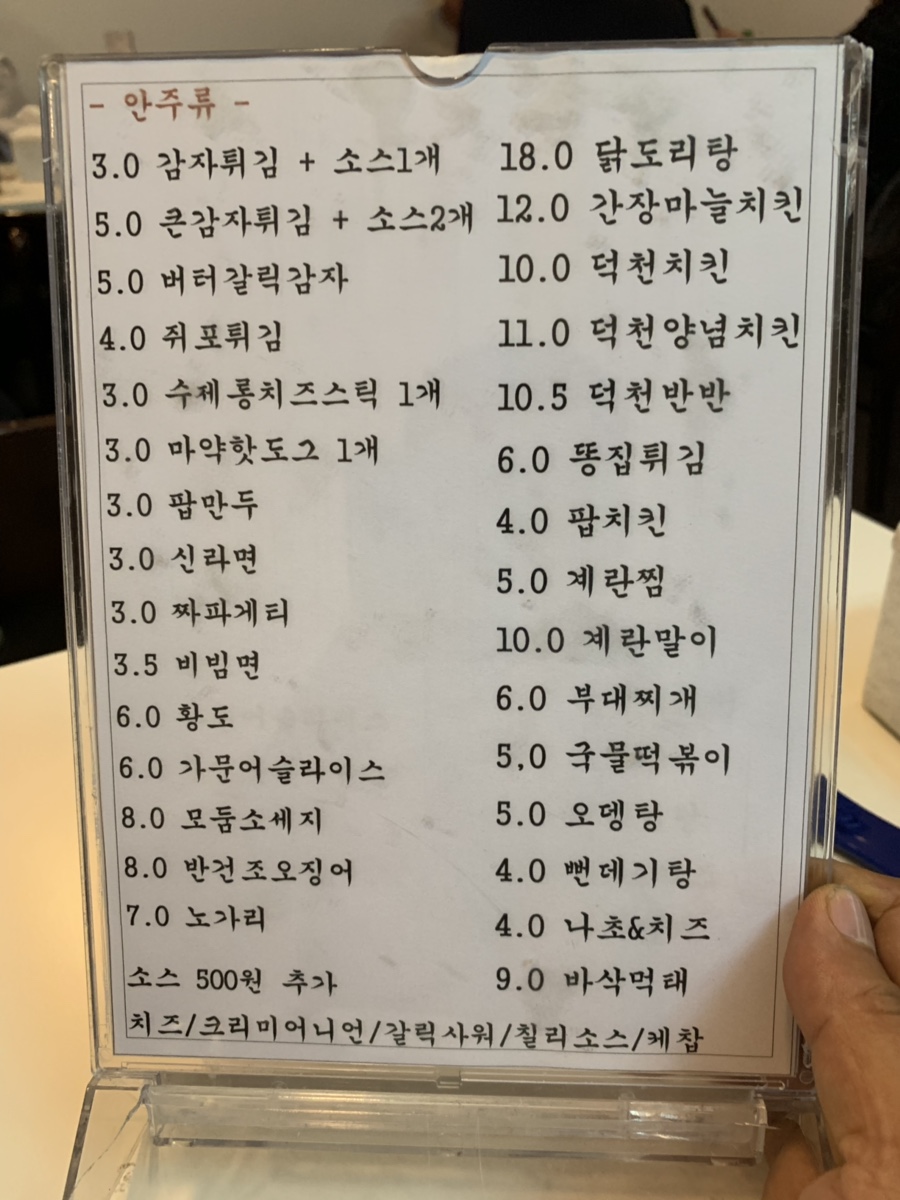 - 안주류 -
3.0 감자튀김 + 소스1개
5.0 큰감자튀김 + 소스2개
5.0 버터갈릭감자
4.0 쥐포튀김
3.0 수제롱치즈스틱 1개
3.0 마약핫도그 1개
3.0 팝만두
3.0 신라면
3.0 짜파게티
3.5 비빔면
6.0 황도
6.0 가문어슬라이스
8.0 모둠소세지
8.0 반건조오징어
7.0 노가리
18.0 닭도리탕
12.0 간장마늘치킨
10.0 덕천치킨
11.0 덕천양념치킨
10.5 덕천반반
6.0 똥집튀김
4.0 팝치킨
5.0 계란찜
10.0 계란말이
6.0 부대찌개
5,0 국물떡볶이
5.0 오뎅탕
4.0 뻔데기탕
4.0 나초&치즈
9.0 바삭먹태
소스 500원 추가
치즈/크리미어니언/갈릭사워/칠리소스/케찹